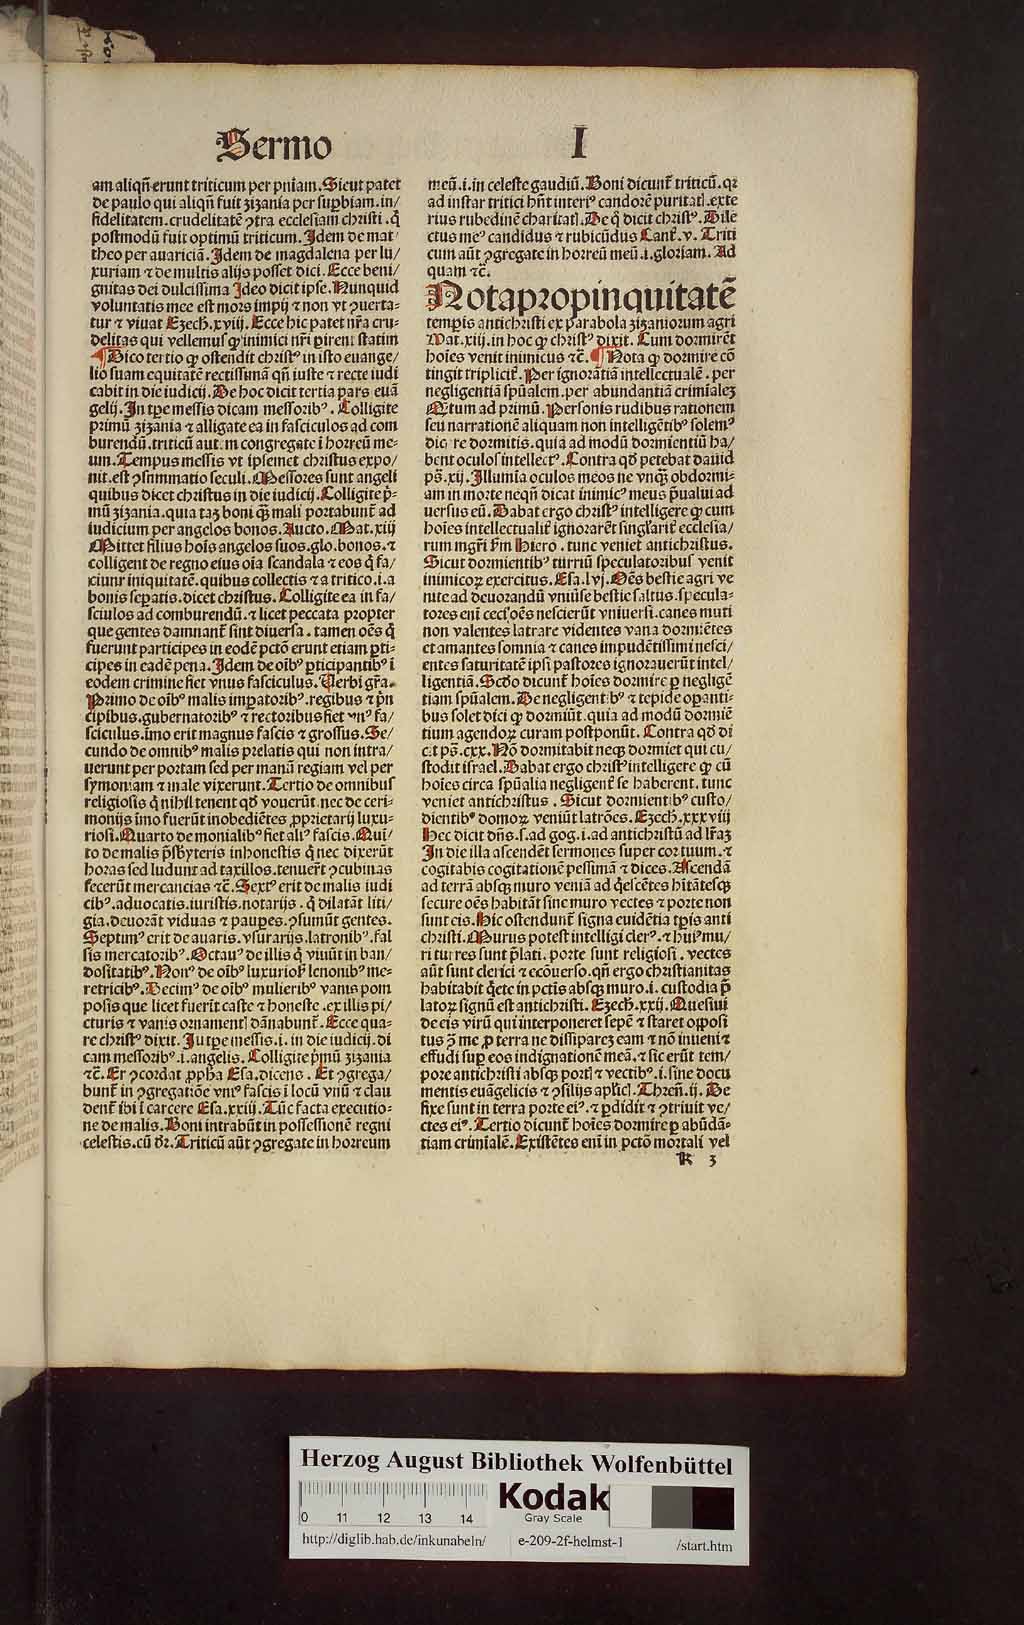 Sermo I
am aliqñ erunt triticum per pniam. Sicut patet
de paulo qui aliqñ fuit zizania per supbiam. in/
fidelitatem. crudelitatē ꝯtra ecclesiam christi. q̇
postmodū fuit optimū triticum. Idem de mat
theo per auariciā. Idem de magdalena per lu/
xuriam ⁊ de multis alijs posset dici. Ecce beni/
gnitas dei dulcissima Ideo dicit ipse. Nunquid
voluntatis mee est mors impij ⁊ non vt ꝯuerta-
tur ⁊ viuat Ezech. xviij. Ecce hic patet nr̄a cru-
delitas qui vellemus ꝙ inimici nr̄i perirent statim
¶ Dico tertio ꝙ ostendit christꝰ in isto euange/
lio suam equitatē rectissimā qñ iuste ⁊ recte iudi
cabit in die iudicij. De hoc dicit tertia pars euā
gelij. In tpe messis dicam messoribꝰ. Colligite
primū zizania ⁊ alligate ea in fasciculos ad com
burendū. triticū autem congregate ī horreū me-
um. Tempus messis vt ipsemet christus expo/
nit. est ꝯsummatio seculi. Messores sunt angeli
quibus dicet christus in die iudicij. Colligite p̄-
mū zizania. quia tā boni q̄ꝫ mali portabunt̄ ad
iudicium per angelos bonos. Iucto. Mat. xiij
Mittet filius hoīs angelos suos. glo. bonos. ⁊
colligent de regno eius oīa scandala ⁊ eos q̇ fa/
ciunt iniquitatē. quibus collectis ⁊ a tritico. i. a
bonis sepatis. dicet christus. Colligite ea in fa/
sciculos ad comburendū. ⁊ licet peccata propter
que gentes damnant̄ sint diuersa. tamen oēs q̇
fuerunt participes in eodē pctō erunt etiam pti-
cipes in eadē pena. Idem de oībꝰ pticipantibꝰ ī
eodem crimine fiet vnus fasciculus. Verbi gr̄a.
Primo de oībꝰ malis impatoribꝰ. regibus ⁊ p̄n
cipibus. gubernatoribꝰ ⁊ rectoribus fiet vnꝰ fa/
sciculus. īmo erit magnus fascis ⁊ grossus. Se/
cundo de omnibꝰ malis prelatis qui non intra/
uerunt per portam sed per manū regiam vel per
symoniam ⁊ male vixerunt. Tertio de omnibus
religiosis q̇ nihil tenent qd̄ vouerūt. nec de ceri-
monijs īmo fuerūt inobediētes proprietarij luxu-
riosi. Quarto de monialibꝰ fiet aliꝰ fascis. Qui/
to de malis p̄sbyteris inhonestis q̇ nec dixerūt
horas sed ludunt ad taxillos. tenuer̄t ꝯcubinas
fecerūt mercancias ⁊c̄. Sextꝰ erit de malis iudi
cibꝰ. aduocatis. iuristis. notarijs. q̇ dilatāt liti/
gia. deuorāt viduas ⁊ paupes. ꝯsumūt gentes.
Septimꝰ erit de auaris. vsurarijs. latronibꝰ. fal
sis mercatoribꝰ. Octauꝰ de illis q̇ viuūt in ban/
dositatibꝰ. Nonꝰ de oībꝰ luxuriosꝭ lenonibꝰ me-
retricibꝰ. Decimꝰ de oībꝰ mulieribꝰ vanis pom
posis que licet fuerīt caste ⁊ honeste. ex illis pi/
cturis ⁊ vanis ornamentꝭ dānabunt̄. Ecce qua-
re christꝰ dixit. In tpe messis. i. in die iudicij. di
cam messoribꝰ. i. angelis. Colligite p̄mū zizania
⁊c̄. Et ꝯcordat ꝓpha Esa. dicens. Et ꝯgrega/
bunt̄ in ꝯgregatiōe vniꝰ fascis ī locū vnū ⁊ clau
dent̄ ibi ī carcere Esa. xxiij. Tūc facta executio-
ne de malis. Boni intrabūt in possessionē regni
celestis. cū dr̄. Triticū aūt ꝯgregate in horreum
meū. i. in celeste gaudiū. Boni dicunt̄ triticū. qꝛ
ad instar tritici hn̄t interiꝰ candorē puritatꝭ. exte
rius rubedinē charitatꝭ. De q̇ dicit christꝰ. Dile
ctus meꝰ candidus ⁊ rubicūdus Cant̄. v. Triti
cum aūt ꝯgregate in horreū meū. i. gloriam. Ad
quam ⁊c̄.
Nota propinquitatē
tempis antichristi ex parabola zizaniorum agri
Mat. xiij. in hoc ꝙ christꝰ dixit. Cum dormirēt
hoīes venit inimicus ⁊c̄. ¶ Nota ꝙ dormire cō
tingit triplicit̄. Per ignorātiā intellectualē. per
negligentiā spūalem. per abundantiā crimialeꝫ
Qtum ad primū. Personis rudibus rationem
seu narrationē aliquam non intelligētibꝰ solemꝰ
dicere dormitis. quia ad modū dormientiū ha/
bent oculos intellectꝰ. Contra qd̄ petebat dauid
ps̄. xij. Illumia oculos meos ne vnq̄ꝫ obdormi-
am in morte neqñ dicat inimicꝰ meus p̄ualui ad
uersus eū. Dabat ergo christꝰ intelligere ꝙ cum
hoīes intellectualit̄ ignorarēt singl'arit̄ ecclesia/
rum mgr̄i bm̄ Hiero. tunc veniet antichristus.
Sicut dormientibꝰ turriū speculatoribus venit
inimicoꝝ exercitus. Esa. lvj. Oēs bestie agri ve
nite ad deuorandū vniuse bestie saltus. specula-
tores eniꝫ ceci oēs nescierūt vniuersi. canes muti
non valentes latrare videntes vana dormiētes
et amantes somnia ⁊ canes impudētissimi nesci/
entes saturitatē ipsi pastores ignorauerūt intel/
ligentiā. Scdo dicunt̄ hoīes dormire p negligē
tiam spūalem. De negligentibꝰ ⁊ tepide opanti-
bus solet dici ꝙ dormiūt. quia ad modū dormiē
tium agendoꝝ curam postponūt. Contra qd̄ di
cit ps̄. cxx. Nō dormitabit neqꝫ dormiet qui cu/
stodit israel. Dabat ergo christꝰ intelligere ꝙ cū
hoīes circa spūalia negligent̄ se haberent. tunc
veniet antichristus. Sicut dormientibꝰ custo/
dientibꝰ domoꝝ veniūt latrōes. Ezech. xxxviij
Hec dicit dn̄s. s. ad gog. i. ad antichristū ad lr̄aꝫ
In die illa ascendēt sermones super cor tuum. ⁊
cogitabis cogitationē pessimā ⁊ dices. Ascendā
ad terrā absqꝫ muro veniā ad q̇escētes hītātesqꝫ
secure oēs habitāt sine muro vectes ⁊ porte non
sunt eis. Hic ostendunt̄ signa euidētia tpis anti
christi. Murus potest intelligi clerꝰ. ⁊ huiꝰ mu/
ri turres sunt p̄lati. porte sunt religiosi. vectes
aūt sunt clerici ⁊ ecōuerso. qñ ergo christianitas
habitabit q̇ete in pctis absqꝫ muro. i. custodia p̄
latoꝝ signū est antichristi. Ezech. xxij. Quesiui
de eis virū qui interponeret sepē ⁊ staret opposi
tus ꝯ me pro terra ne dissiparez eam ⁊ nō inueni ⁊
effudi sup eos indignationē meā. ⁊ sic erūt tem/
pore antichristi absqꝫ portꝭ ⁊ vectibꝰ. i. sine docu
mentis euāgelicis ⁊ ꝯsilijs aplicꝭ. Thren̄. ij. De
fixe sunt in terra porte eiꝰ. ⁊ pdidit ⁊ ꝯtriuit ve/
ctes eiꝰ. Tertio dicunt̄ hoīes dormire p abūdā-
tiam criminalē. Existētes eniꝫ in pctō mortali vel
K 3
Herzog August Bibliothek Wolfenbüttel
0 11 12 13 14
Kodak
Gray Scale
http://diglib.hab.de/inkunabeln/ e-209-2f-helmst-1 /start.htm